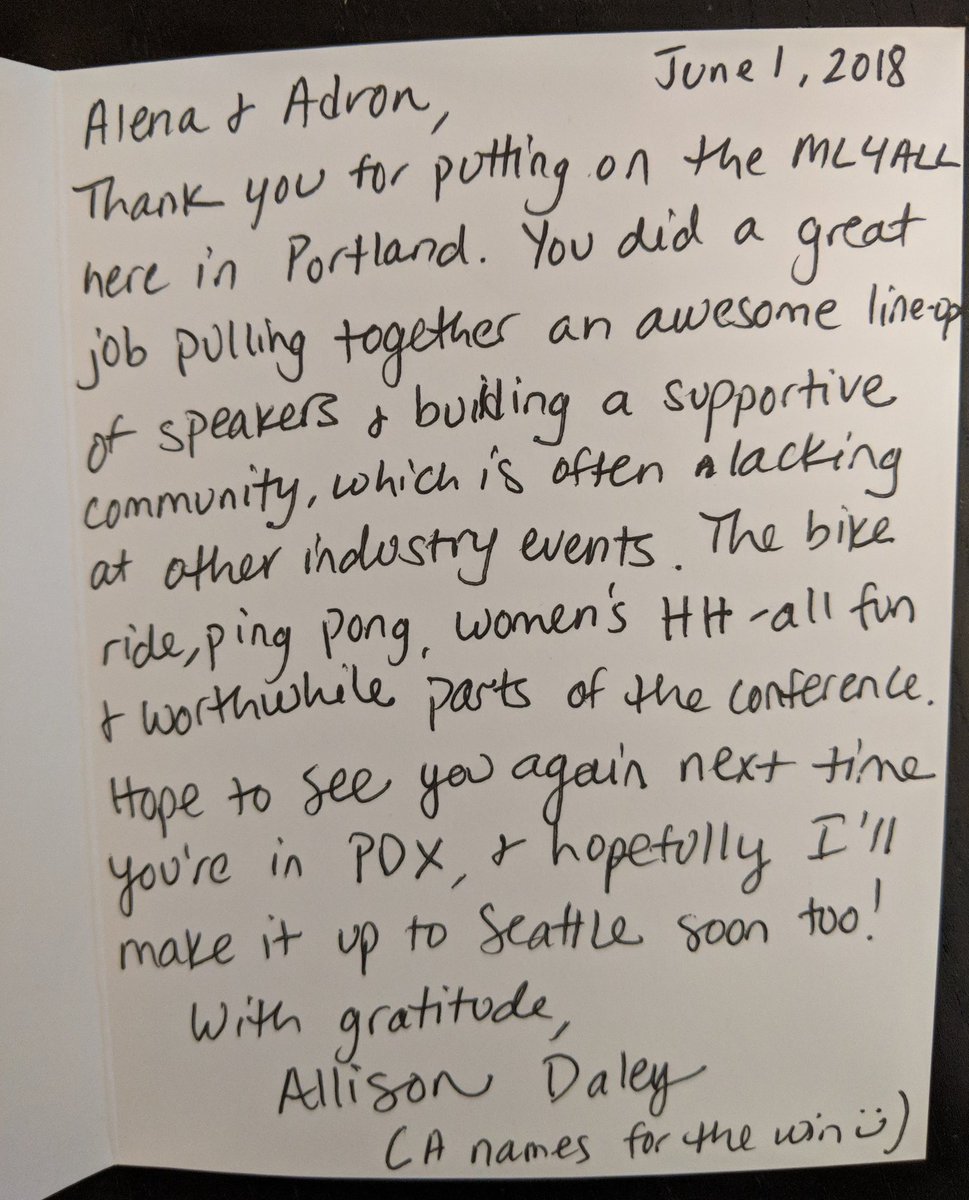 June 1, 2018
Alena & Adron,
Thank you for putting on the ML4ALL
here in Portland. You did a great
job pulling together an awesome line-up
of speakers & building a supportive
community, which is often lacking
at other industry events. The bike
ride, ping pong, women's HH - all fun
& worthwhile parts of the conference.
Hope to see you again next time
you're in PDX, & hopefully I'll
make it up to Seattle soon too!
With gratitude,
Allison Daley
(A names for the win :))